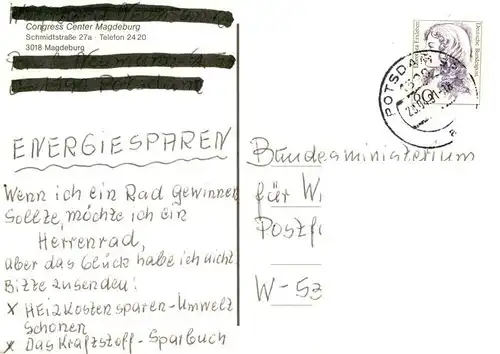 Congress Center Magdeburg
Schmidtstraße 27a · Telefon 24 20
3018 Magdeburg
ENERGIESPAREN
Wenn ich ein Rad gewinnen
sollte, möchte ich ein
Herrenrad,
aber das Glück habe ich nicht
Bitte zusenden:
x Heizkosten sparen - Umwelt
schonen
x Das Kraftstoff - Sparbuch
Deutsche Bundespost
POTSDAM
Bundesministerium
für W
Postf
W-53